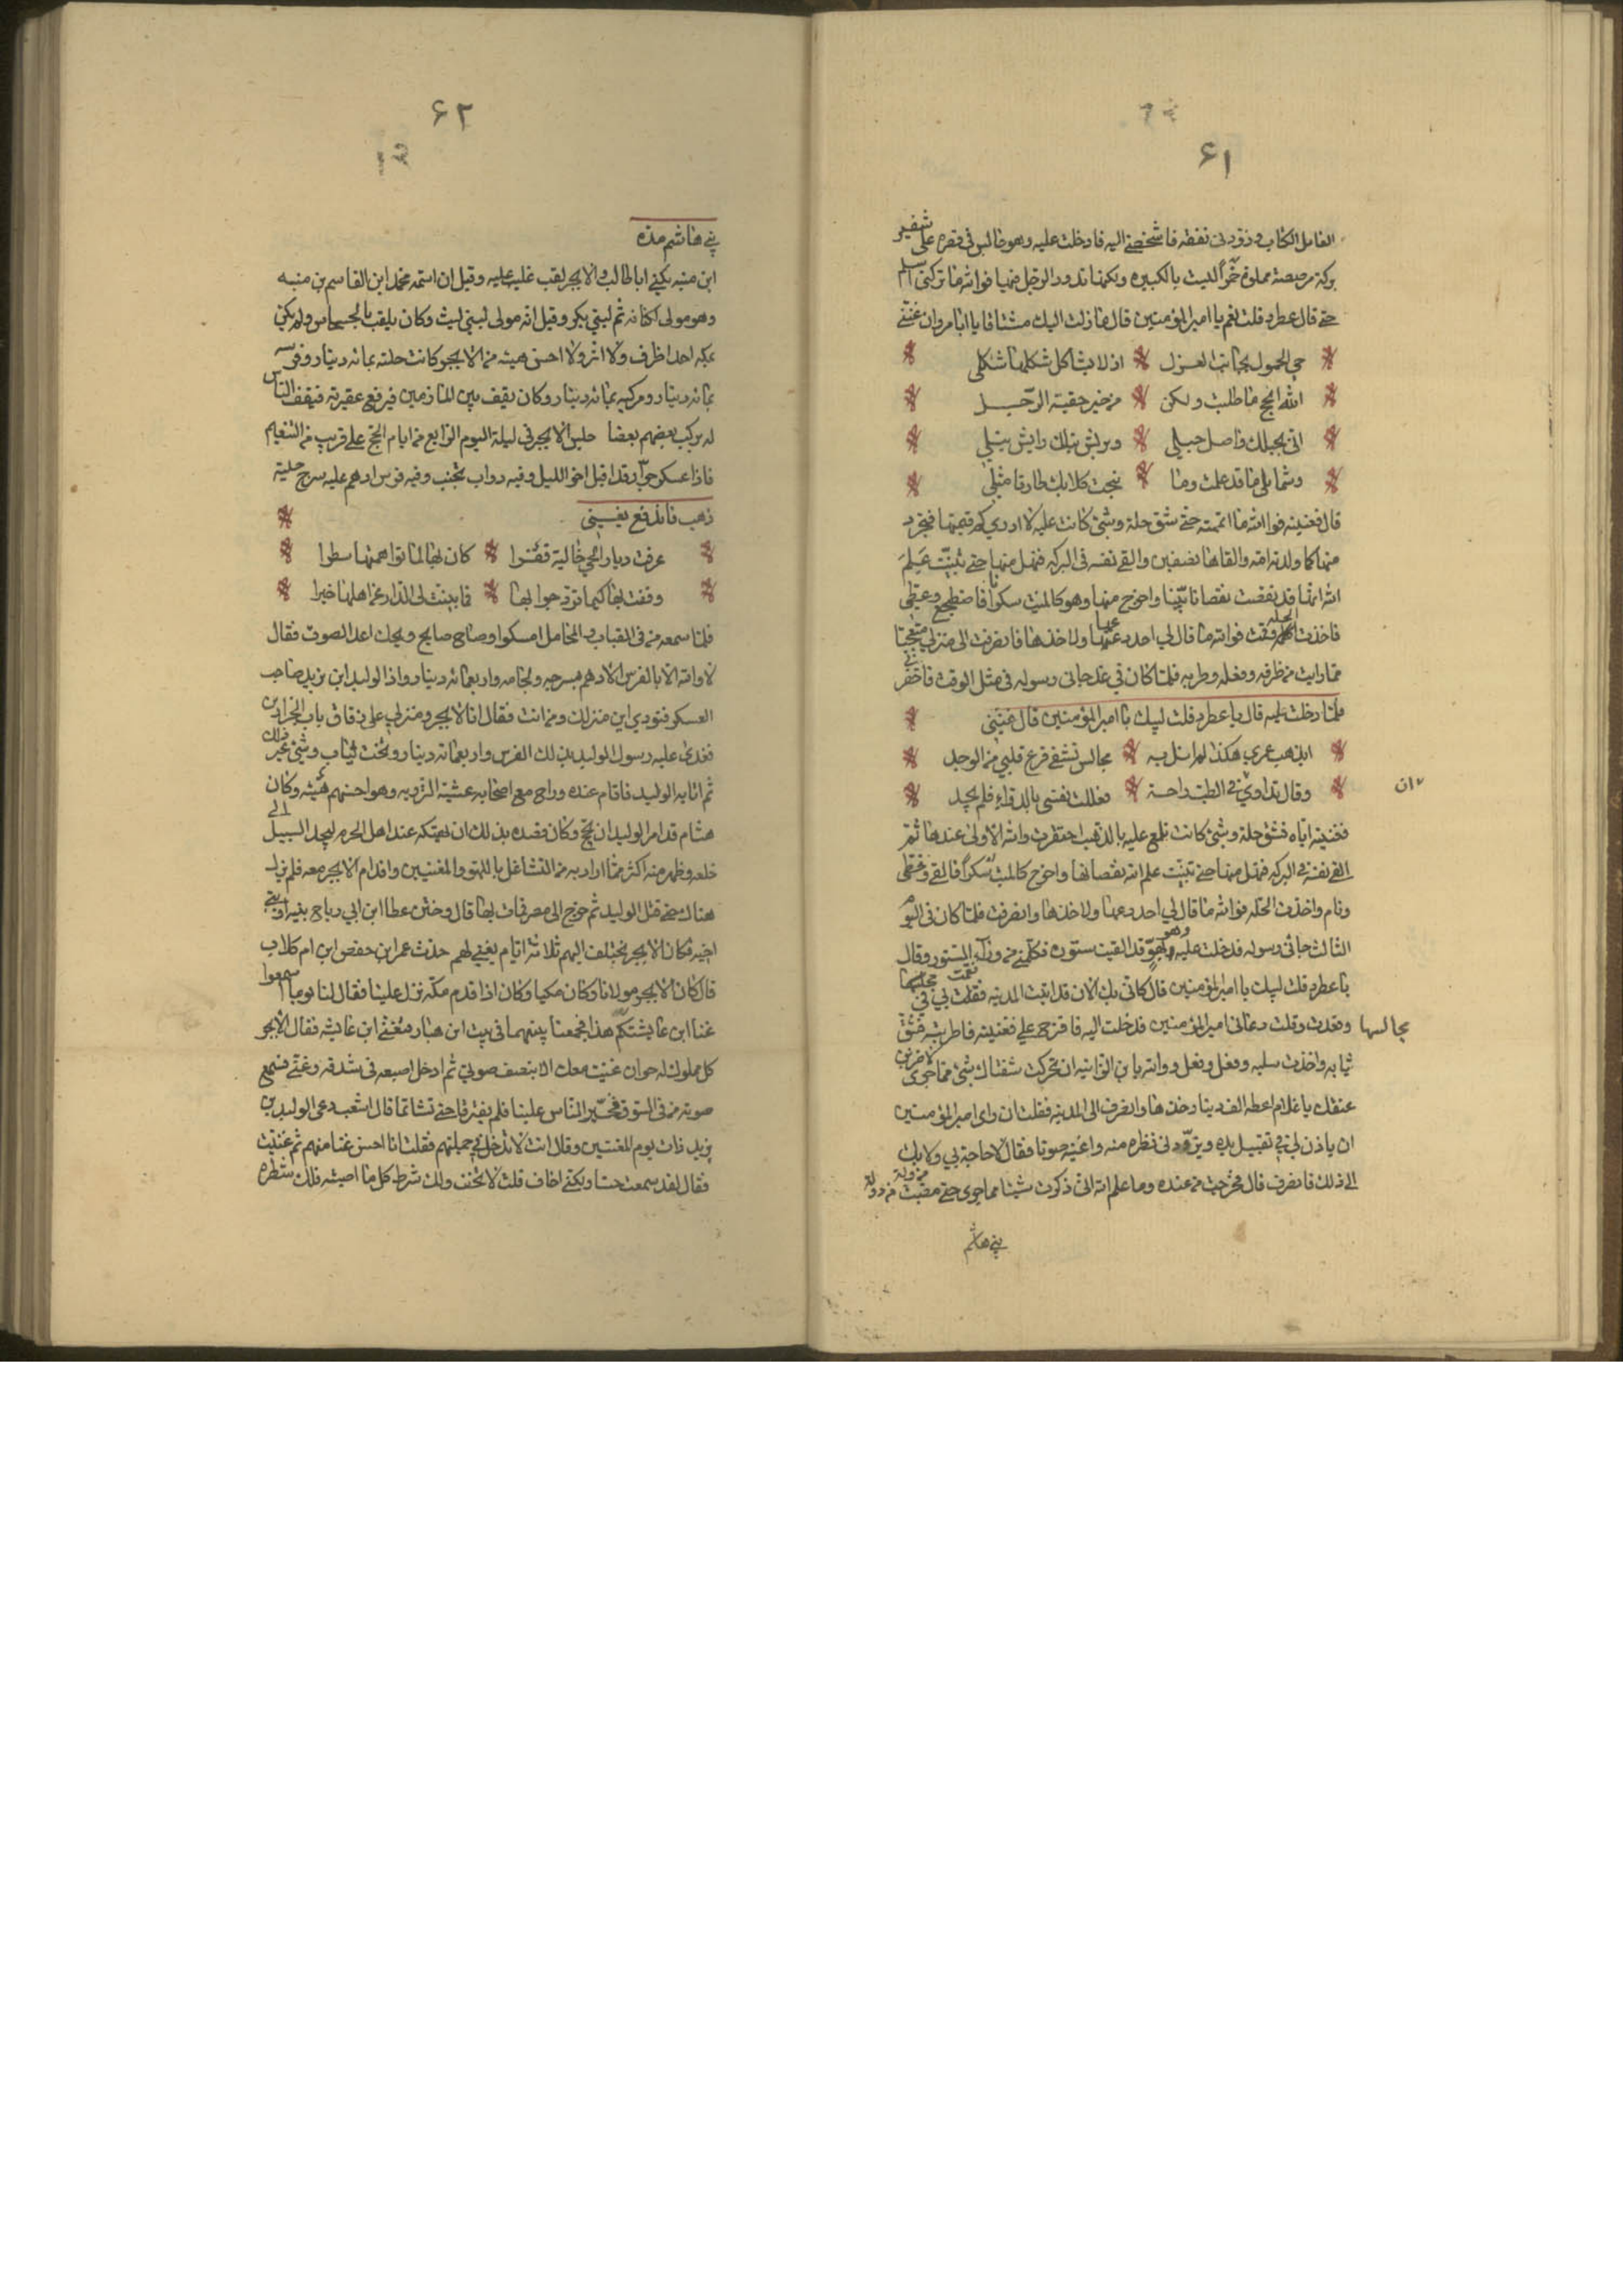 ۶۱
العامل الكتاب وزودني نفقه فاشخصني اليه فادخلت عليه وهو جالس في قصره على شفير
بركة مرصصة مملوة خمرا ليست بالكبيره ولكنها يدور الرجل فيها فوالله ما تركني اسلم
حتى قال عطرد قلت نعم يا امير المؤمنين قال ما زلت اليك مشتاقا يا ابا مروان غنني
حي الحمول بجانب العزل اذ لا يشاكل شكلها شكلي
الله انجح ما طلبت ولكن من خير حقيبة الرحل
اني بحبلك واصل حبلي وبريش نبلك رايش نبلي
وشمايلي ما قد علمت وما نبحت كلابك طارقا مثلي
قال فغنيته فوالله ما اتممته حتى شق حلة وشي كانت عليه لا ادري كم قيمتها فتجرد
منها كما ولدته امه والقاها نصفين والقى نفسه في البركه فنهل منها حتى تبينت علم
الله انها قد نقصت نقصانا بينا واخرج منها وهو كالميت سكرا فاضطجع وغطي
فاخذت الحلة وقمت فوالله ما قال لي احد دعها ولا خذها فانصرفت الى منزلي متعجبا
مما رايت من ظرفه وفعله وطربه فلما كان في غد جاني رسوله في مثل الوقت فاحضرني
فلما دخلت عليه قال يا عطرد قلت لبيك يا امير المؤمنين قال غنني
ايذهب عمري هكذا لم انل به مجالس تشفي قرح قلبي من الوجد
وقالوا تداوي في الطب راحة فعللت نفسي بالدواء فلم يجد
ان
فغنيته اياه فشق حلة وشي كانت تلمع عليه بالذهب احتقرت والله الاولى عندها ثم
القى نفسه في البركه فنهل منها حتى تبينت علم الله نقصانها واخرج كالميت سكرا فالقي وغطي
ونام واخذت الحلة فوالله ما قال لي احد دعها ولا خذها وانصرفت فلما كان في اليوم
الثالث جاني رسوله فدخلت عليه وهو في بهو قد القيت ستوره فكلمني من وراء الستور وقال
يا عطرد قلت لبيك يا امير المؤمنين قال كاني بك الان قد اتيت المدينه فقمت بي في
مجالسها وقعدت وقلت دعاني امير المؤمنين فدخلت اليه فاقترح علي فغنيته فاطربته فشق
ثيابه واخذت سلبه وفعل وفعل ووالله يابن الزانيه ان تحركت شفتاك بشي مما جرى لاضربن
عنقك يا غلام اعطه الف دينار خذها وانصرف الى المدينه فقلت ان راى امير المؤمنين
ان ياذن لي في تقبيل يده ويزودني نظره منه واغنيه صوتا فقال لا حاجة بي ولا بك
الى ذلك فانصرف قال فخرجت من عنده وما علم الله اني ذكرت شيئا مما جرى حتى مضت من دولة
بني هاشم
۶۲
بني هاشم مده
ابن منبه يكنى ابا طالب والابجر لقب غلب عليه وقيل ان اسمه محمد ابن القاسم بن منبه
وهو مولى لكنانه ثم لبني بكر وقيل انه مولى لبني ليث وكان يلقب بالحسحاس ولم يكن
بمكه احد اظرف ولا اثرى ولا احسن هيئه من الابجر وكانت حلته بمائه دينار وفرسه
بمائه دينار ومركبه بمائه دينار وكان يقف بين المازمين فيرفع عقيرته فيقف الناس
له يركب بعضهم بعضا جلس الابجر في ليلة اليوم الرابع من ايام الحج على قريب من التنعيم
فاذا عسكر جرار قد اقبل اخر الليل وفيه دواب تجنب وفيه فرس ادهم عليه سرج حلية
ذهب فاندفع يغني
عرفت ديار الحي خالية قفرا كان بها لما توهمتها سطرا
وقفت بها كيما ترد جوابها فما بينت لي الدار عن اهلها خبرا
فلما سمعه من في القباب والمحامل امسكوا وصاح صايح ويحك اعد الصوت فقال
لا والله الا بالفرس الادهم بسرجه ولجامه واربعمائه دينار واذا الوليد ابن يزيد صاحب
العسكر فنودي اين منزلك ومن انت فقال انا الابجر ومنزلي على زقاق باب الخرازين
فغدى عليه رسول الوليد بذلك الفرس واربعمائه دينار وتخت ثياب وشي وغير ذلك
ثم اتى به الوليد فاقام عنده وراح مع اصحابه عشية الترويه وهو احسنهم هيئه وكان
هشام قد امر الوليد ان يحج وكان قصده بذلك ان يهتكه عند اهل الحرم ليجد السبيل الى
خلعه وظهر منه اكثر مما اراد به من التشاغل باللهو والمغنيين واقدام الابجر معه فلم يزل
هناك حتى قتل الوليد ثم خرج الى مصر فمات بها قال وختن عطا ابن ابي رباح بنيه او بني
اخيه فكان الابجر يختلف اليهم ثلاثة ايام يغني لهم حدث عمر ابن حفص ابن ام كلاب
قال كان الابجر مولانا وكان مكيا وكان اذا قدم مكه نزل علينا فقال لنا يوما اسمعوا
غنا ابن عايشتكم هذا فجمعنا بينهما في بيت ابن هبار فغنى ابن عايشه فقال الابجر
كل مملوك له حر ان غنيت معك الا بنصف صوتي ثم ادخل اصبعه في شدقه وغنى فسمع
صوته من في السوق فحشر الناس علينا فلم يفترقا حتى تشاتما قال اشعب دعى الوليد بن
يزيد ذات يوم المغنيين وقال انت لا تدخل في جملتهم فقلت انا احسن غنا منهم ثم غنيت
فقال لقد سمعت حسنا ولكني اخاف قلت لا تخف ولك شرط كل ما اصبته فلك شطره